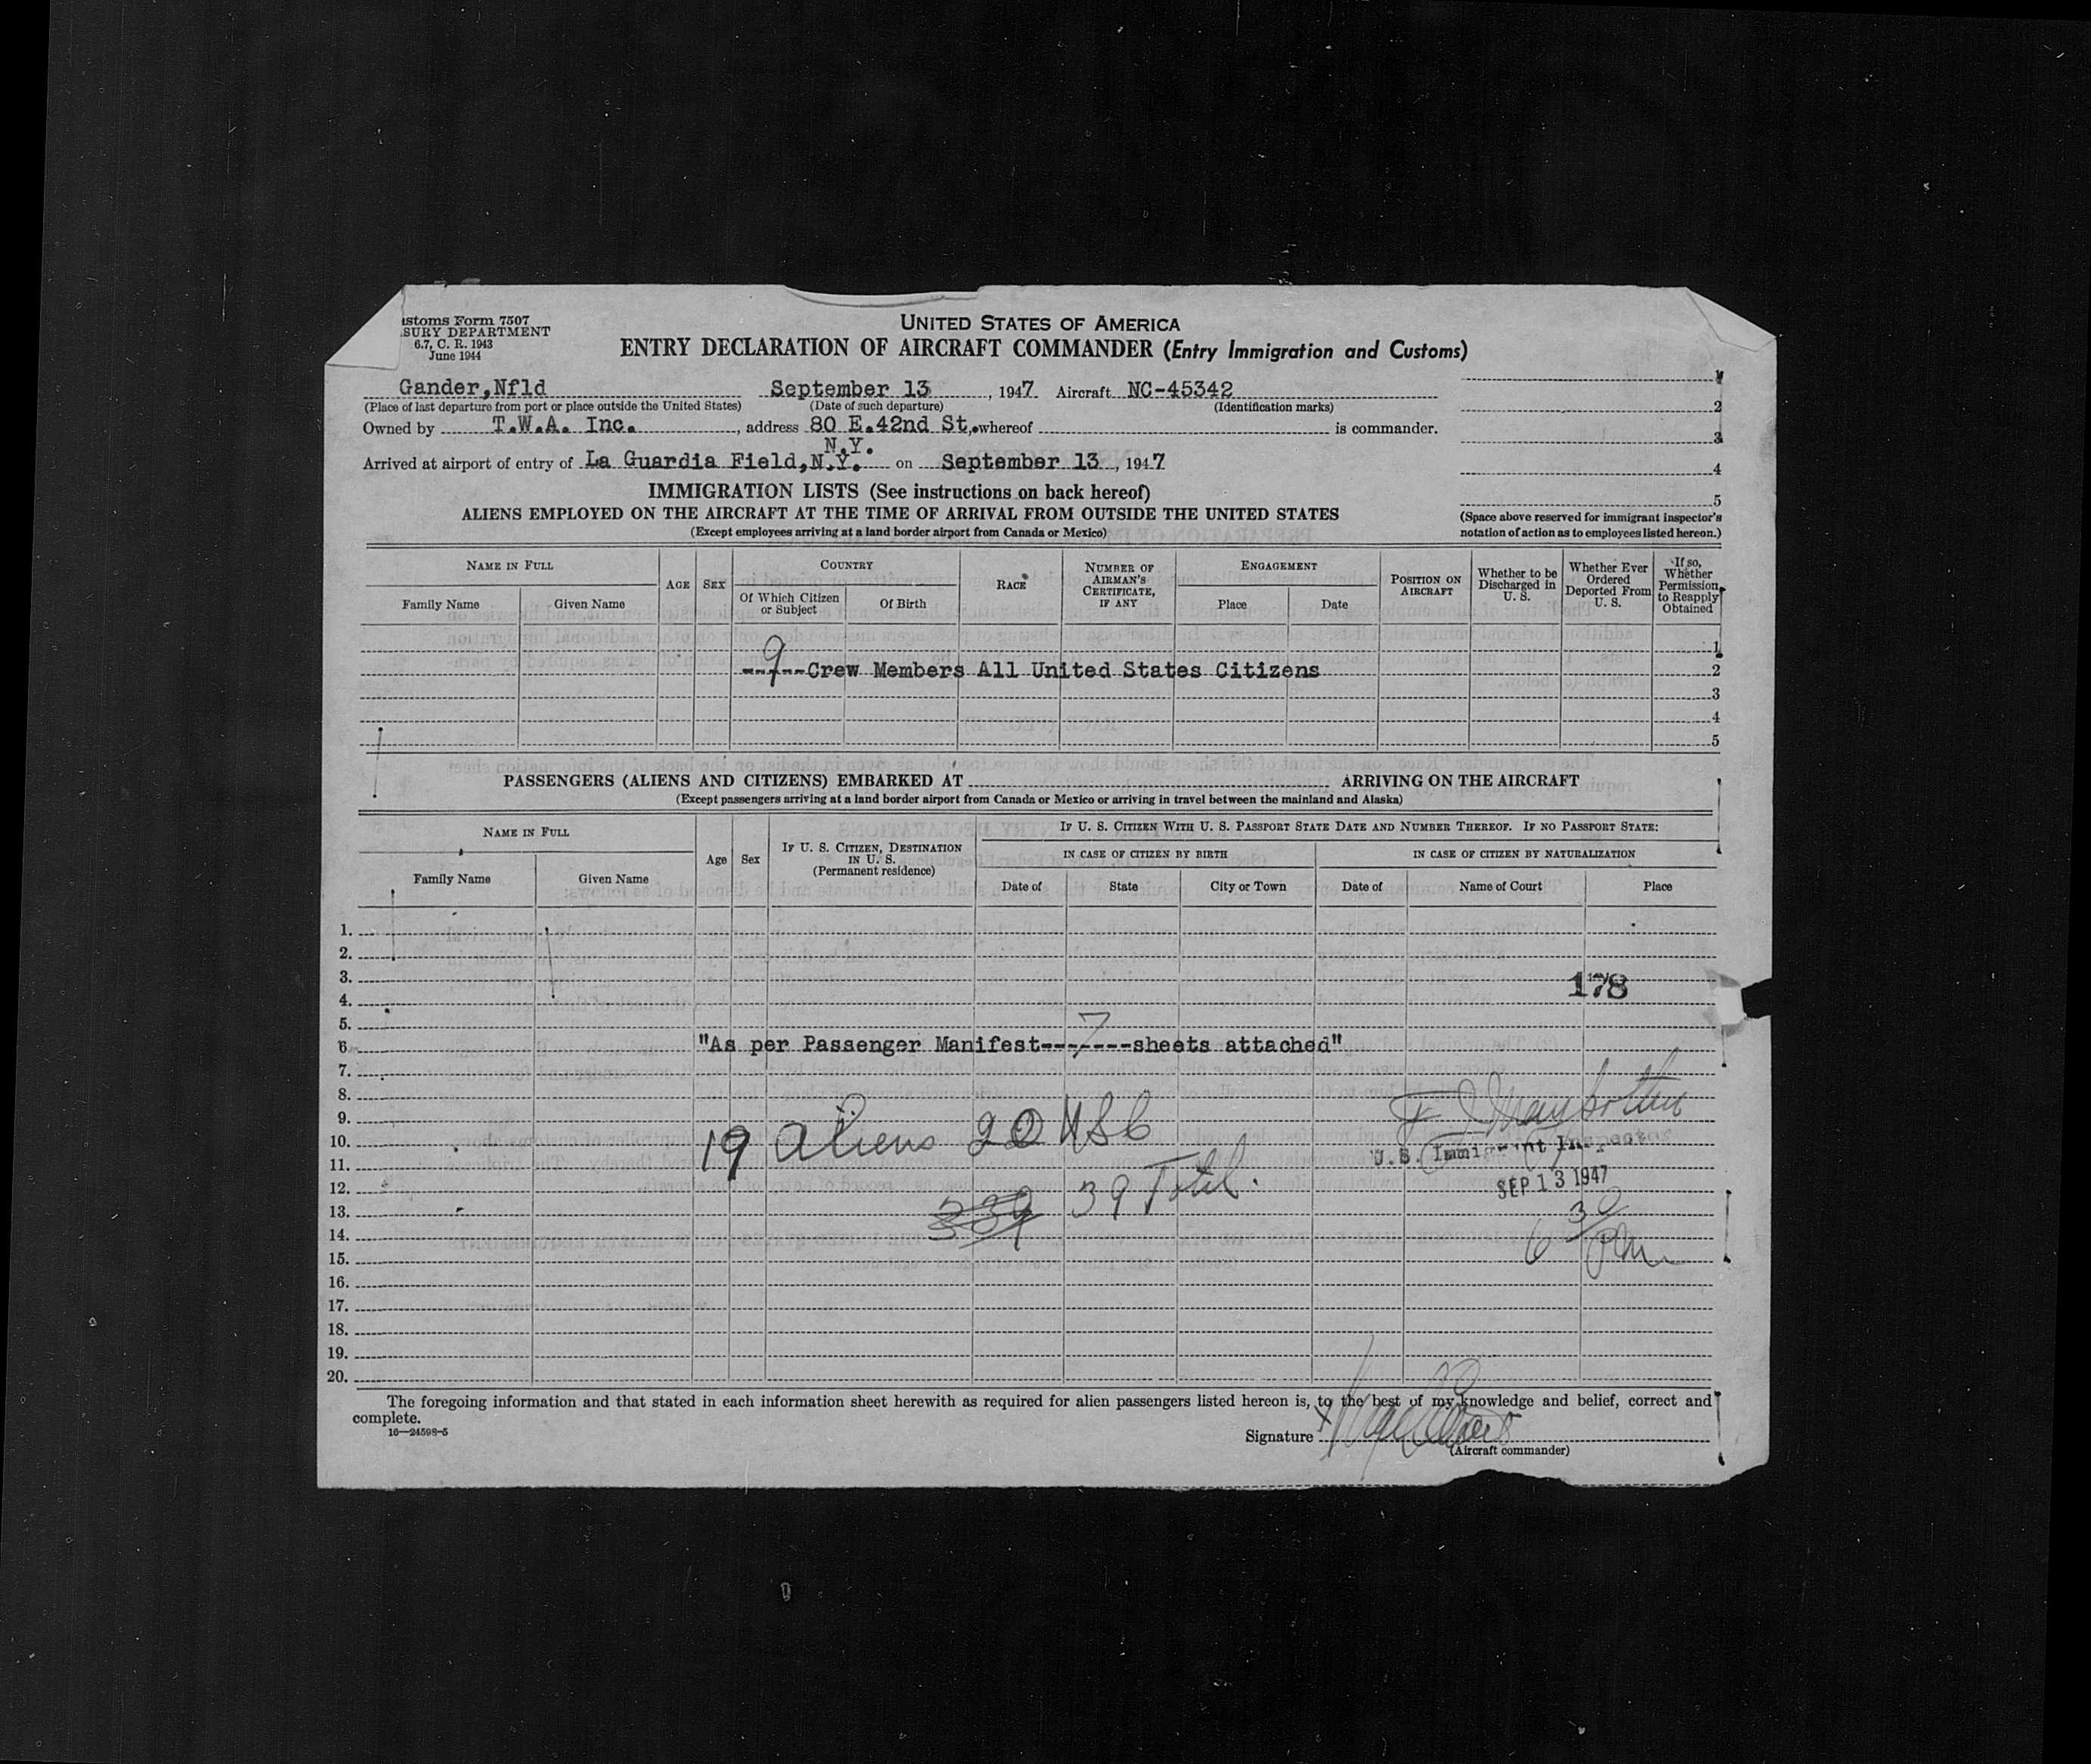 stoms Form 7507
SURY DEPARTMENT
6.7, C. R. 1943
June 1944
UNITED STATES OF AMERICA
ENTRY DECLARATION OF AIRCRAFT COMMANDER (Entry Immigration and Customs)
Gander,Nfld September 13, 1947 Aircraft NC-45342
(Place of last departure from port or place outside the United States) (Date of such departure) (Identification marks)
Owned by T.W.A. Inc., address 80 E.42nd St. whereof is commander.
N.Y.
Arrived at airport of entry of La Guardia Field,N.Y. on September 13, 1947
1
2
3
4
5
IMMIGRATION LISTS (See instructions on back hereof)
ALIENS EMPLOYED ON THE AIRCRAFT AT THE TIME OF ARRIVAL FROM OUTSIDE THE UNITED STATES
(Except employees arriving at a land border airport from Canada or Mexico)
(Space above reserved for immigrant inspector's
notation of action as to employees listed hereon.)
NAME IN FULL
Family Name Given Name
AGE
SEX
COUNTRY
Of Which Citizen or Subject
Of Birth
RACE
NUMBER OF AIRMAN'S CERTIFICATE, IF ANY
ENGAGEMENT
Place Date
POSITION ON AIRCRAFT
Whether to be Discharged in U. S.
Whether Ever Ordered Deported From U. S.
If so, Whether Permission to Reapply Obtained
1
9
-----Crew Members All United States Citizens 2
3
4
5
PASSENGERS (ALIENS AND CITIZENS) EMBARKED AT ARRIVING ON THE AIRCRAFT
(Except passengers arriving at a land border airport from Canada or Mexico or arriving in travel between the mainland and Alaska)
NAME IN FULL
Family Name Given Name
Age
Sex
IF U. S. CITIZEN, DESTINATION IN U. S.
(Permanent residence)
IF U. S. CITIZEN WITH U. S. PASSPORT STATE DATE AND NUMBER THEREOF. IF NO PASSPORT STATE:
IN CASE OF CITIZEN BY BIRTH IN CASE OF CITIZEN BY NATURALIZATION
Date of State City or Town Date of Name of Court Place
1.
2.
3. 178
4.
5.
6. "As per Passenger Manifest---7---sheets attached"
7.
8.
9.
10. 19 Aliens 20 USC
11. U.S. Immigrant Inspector
12. 39 Total. SEP 13 1947
13. 339
14. 6 30 PM
15.
16.
17.
18.
19.
20.
The foregoing information and that stated in each information sheet herewith as required for alien passengers listed hereon is, to the best of my knowledge and belief, correct and
complete.
16—24598-5
Signature
(Aircraft commander)